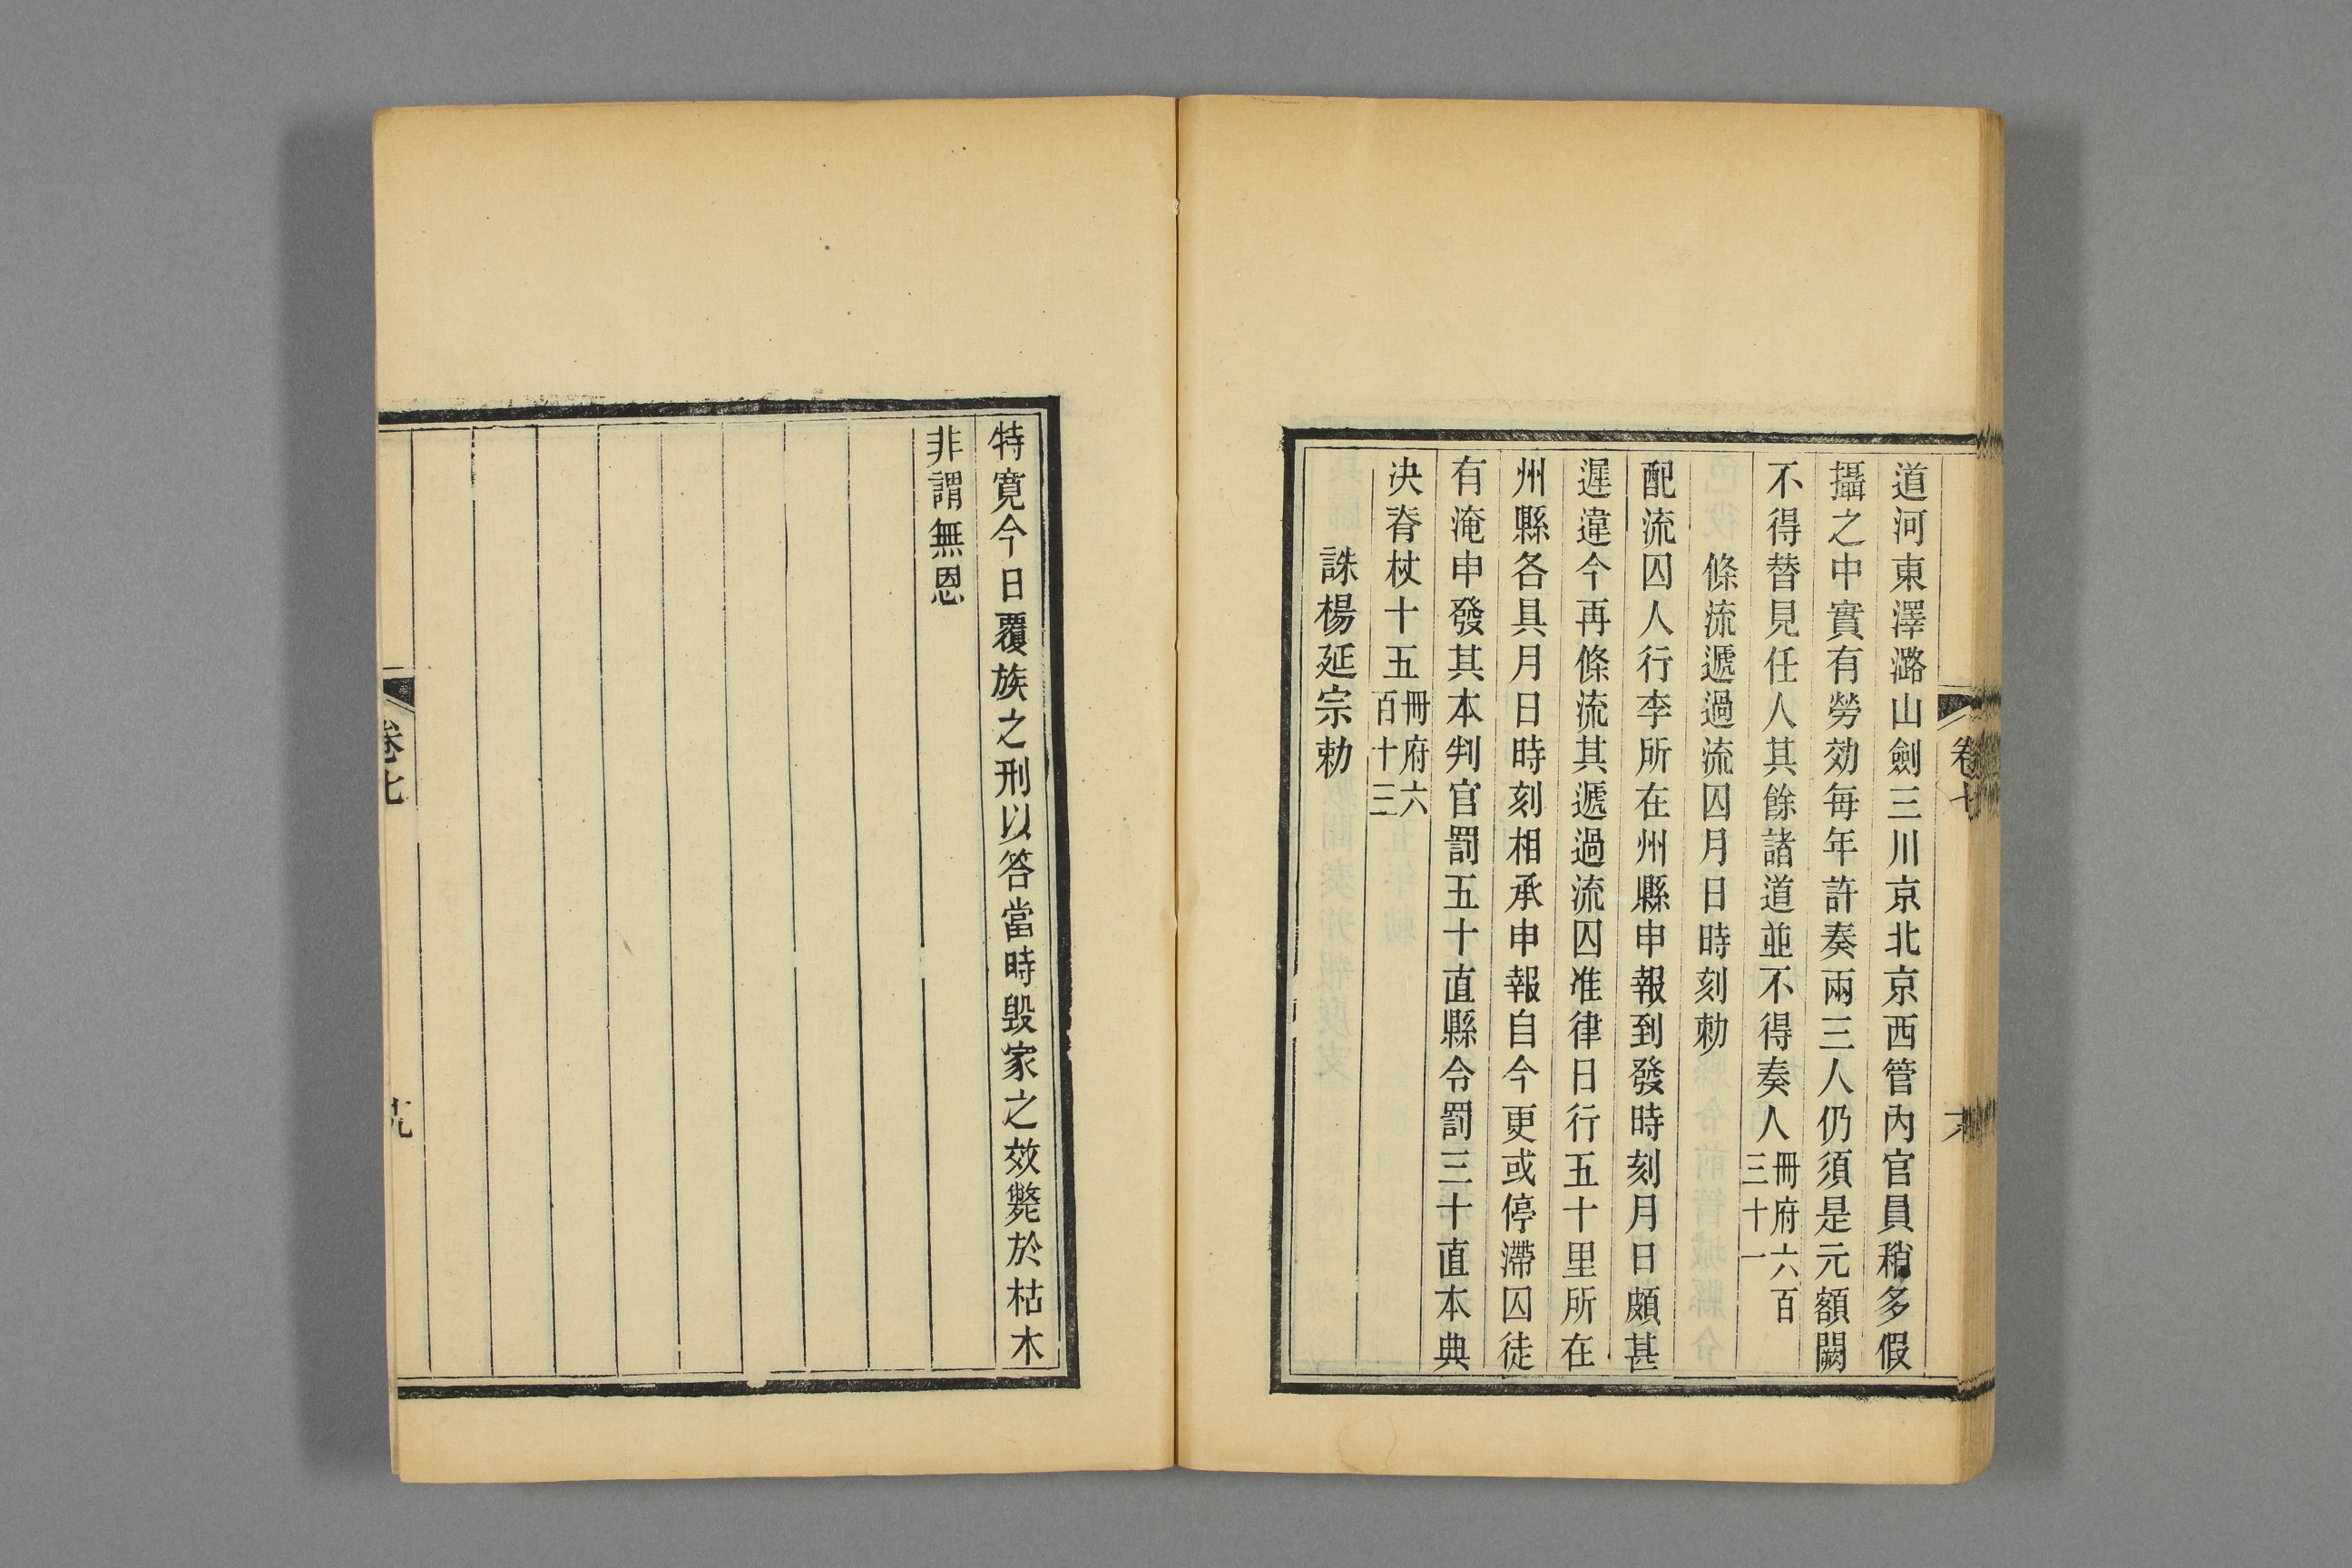 道河東澤潞山劍三川京北京西管內官員稍多假
攝之中實有勞効每年許奏兩三人仍須是元額闕
不得替見任人其餘諸道並不得奏人冊府六百三十一
條流遞過流囚月日時刻勅
配流囚人行李所在州縣申報到發時刻月日頗甚
遲違今再條流其遞過流囚准律日行五十里所在
州縣各具月日時刻相承申報自今更或停滯囚徒
有淹申發其本判官罰五十直縣令罰三十直本典
決脊杖十五冊府六百十三
誅楊延宗勅
特寬今日覆族之刑以答當時毀家之效斃於枯木
非謂無恩
卷七